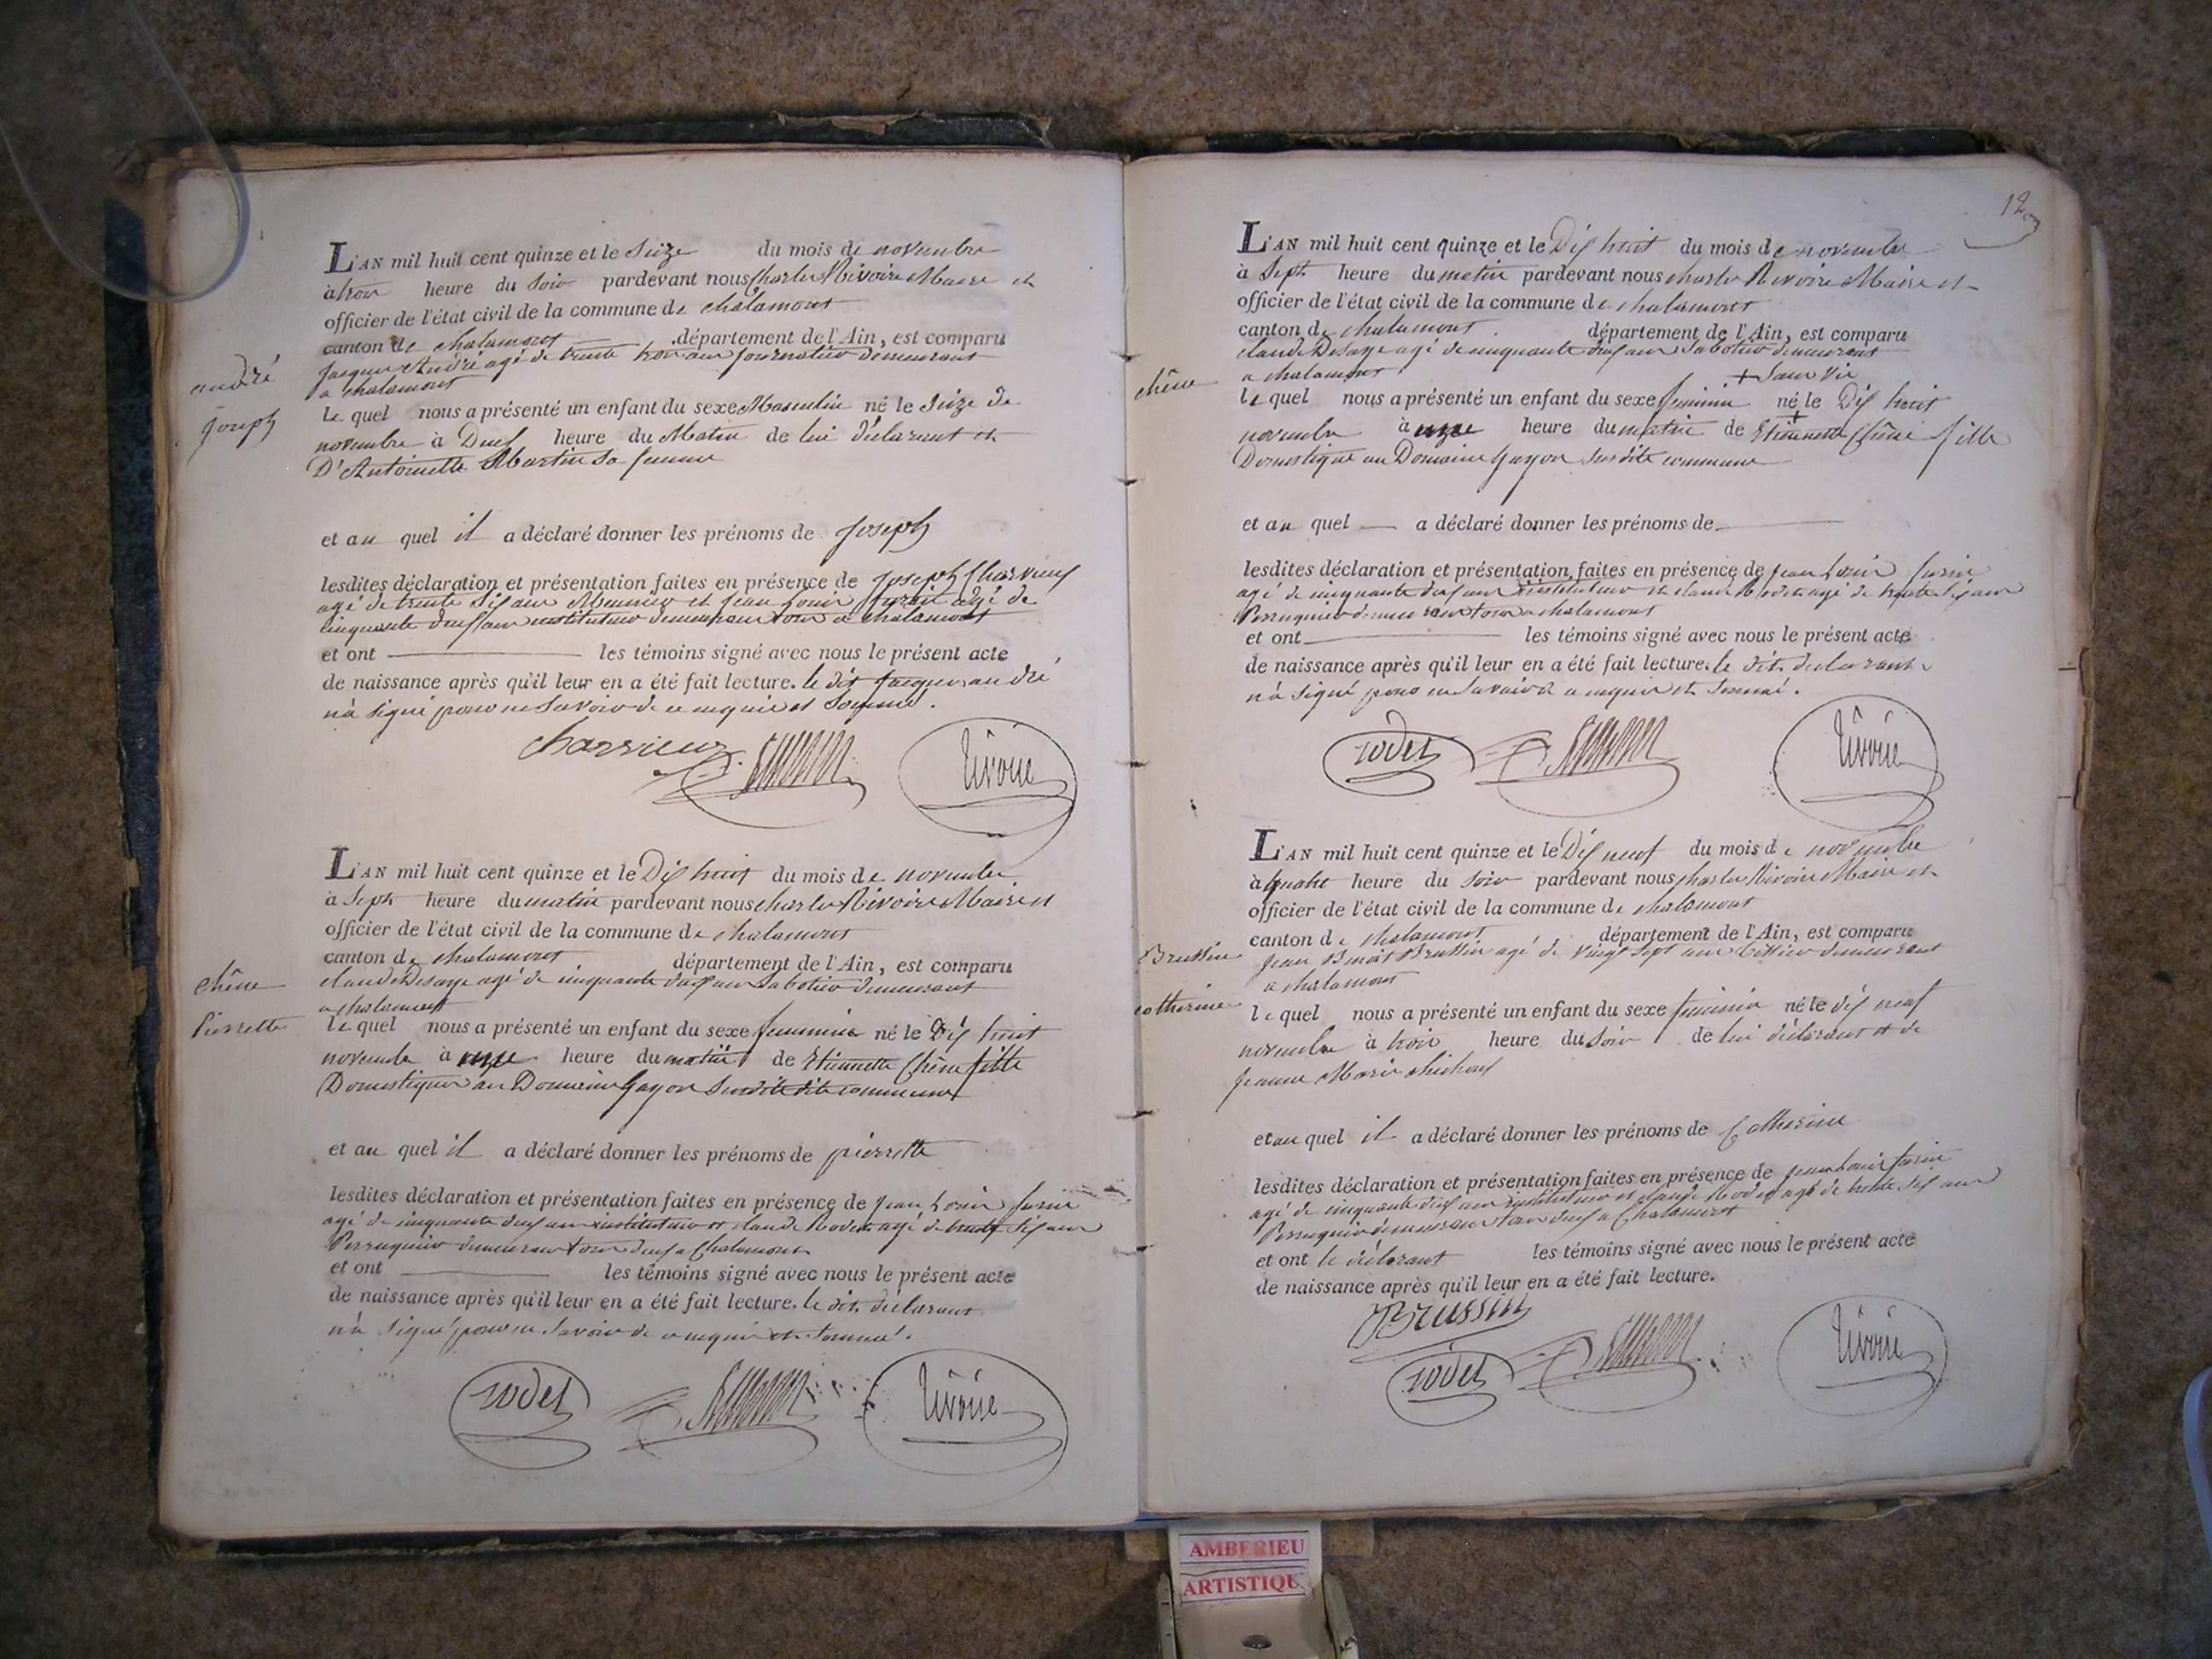 L'AN mil huit cent quinze et le Seize du mois de novembre
à trois heure du Soir pardevant nous Charles Rivoire Maire et
officier de l'état civil de la commune de chalamont
canton de chalamont département de l'Ain, est comparu
jacques André agé de trente trois ans journalier demeurant
a chalamont
andré
joseph
Le quel nous a présenté un enfant du sexe Masculin né le Seize de
novembre à Deux heure du Matin de lui déclarant et
D'Antoinette Martin Sa femme
et au quel il a déclaré donner les prénoms de joseph
lesdites déclaration et présentation faites en présence de joseph
agé de trente Six ans Meunier et jean Louis agé de
cinquante deux ans instituteur demeurant tous a chalamont
et ont les témoins signé avec nous le présent acte
de naissance après qu'il leur en a été fait lecture. le dit jacques andré
n'a signé pour ne Savoir de ce enquis et Sommé.
Rivoire
L'AN mil huit cent quinze et le Dix huit du mois de novembre
à Sept heure du matin pardevant nous charles Rivoire Maire et
officier de l'état civil de la commune de chalamont
canton de chalamont département de l'Ain, est comparu
claude Desaye agé de cinquante deux ans Sabotier demeurant
a chalamont
chêne
Pierrette
le quel nous a présenté un enfant du sexe feminin né le Dix huit
novembre à heure du matin de Etiennette Chêne fille
Domestique au Domaine Gayon Susdite dite commune
et au quel il a déclaré donner les prénoms de pierrette
lesdites déclaration et présentation faites en présence de jean Louis
agé de cinquante deux ans instituteur et claude Rodet agé de trente Six ans
Perruquier demeurant tous deux a Chalamont
et ont les témoins signé avec nous le présent acte
de naissance après qu'il leur en a été fait lecture. le dit déclarant
n'a signé pour ne Savoir de ce enquis et Sommé.
rodet Rivoire
12
L'AN mil huit cent quinze et le Dix huit du mois de novembre
à Sept heure du matin pardevant nous charles Rivoire Maire et
officier de l'état civil de la commune de chalamont
canton de chalamont département de l'Ain, est comparu
claude Desaye agé de cinquante deux ans Sabotier demeurant
a chalamont
+ Sans Vie
chêne
le quel nous a présenté un enfant du sexe feminin né + le Dix huit
novembre à heure du matin de Etiennette Chêne fille
Domestique au Domaine Gayon Susdite commune
et au quel a déclaré donner les prénoms de
lesdites déclaration et présentation faites en présence de jean Louis
agé de cinquante deux ans instituteur et claude Rodet agé de trente Six ans
Perruquier demeurant tous a chalamont
et ont les témoins signé avec nous le présent acte
de naissance après qu'il leur en a été fait lecture. le dit déclarant
n'a signé pour ne Savoir de ce enquis et Sommé.
rodet Rivoire
L'AN mil huit cent quinze et le Dix neuf du mois de novembre
à quatre heure du Soir pardevant nous charles Rivoire Maire et
officier de l'état civil de la commune de chalamont
canton de chalamont département de l'Ain, est comparu
jean Benoit Brussin agé de vingt Sept ans demeurant
a chalamont
Brussin
catherine
le quel nous a présenté un enfant du sexe feminin né le dix neuf
novembre à trois heure du Soir de lui déclarant et de
jeanne Marie
et au quel il a déclaré donner les prénoms de Catherine
lesdites déclaration et présentation faites en présence de jean Louis
agé de cinquante deux ans instituteur et claude Rodet agé de trente Six ans
Perruquier demeurant tous deux a Chalamont
et ont le déclarant les témoins signé avec nous le présent acte
de naissance après qu'il leur en a été fait lecture.
Brussin
rodet Rivoire
AMBERIEU
ARTISTIQU